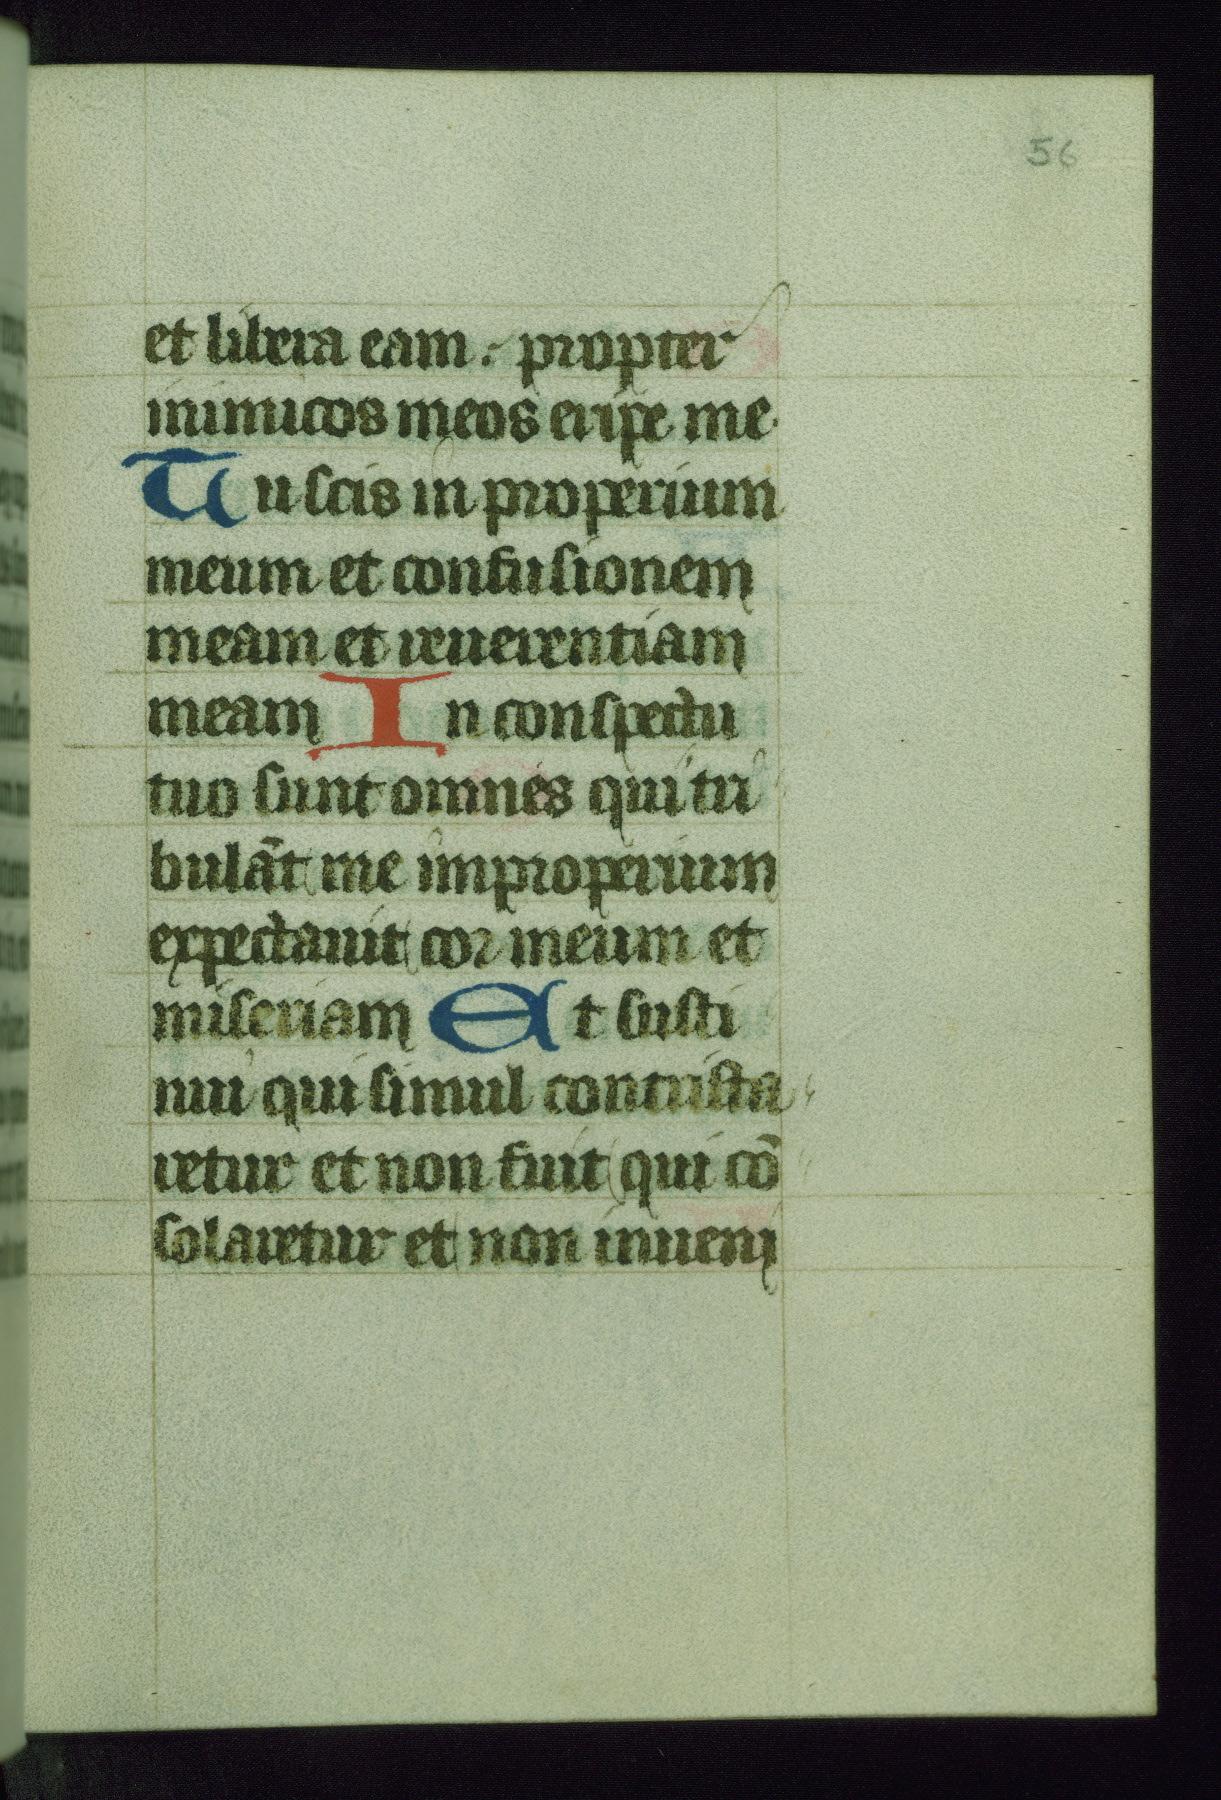 56
et libera eam. propter
inimicos meos eripe me
Tu scis in properium
meum et confusionem
meam et reuerentiam
meam In conspectu
tuo sunt omnes qui tri
bulãt me improperium
expectauit cor meum et
miseriam Et susti
nui qui simul contrista
retur et non fuit qui cõ
solaretur et non inueni